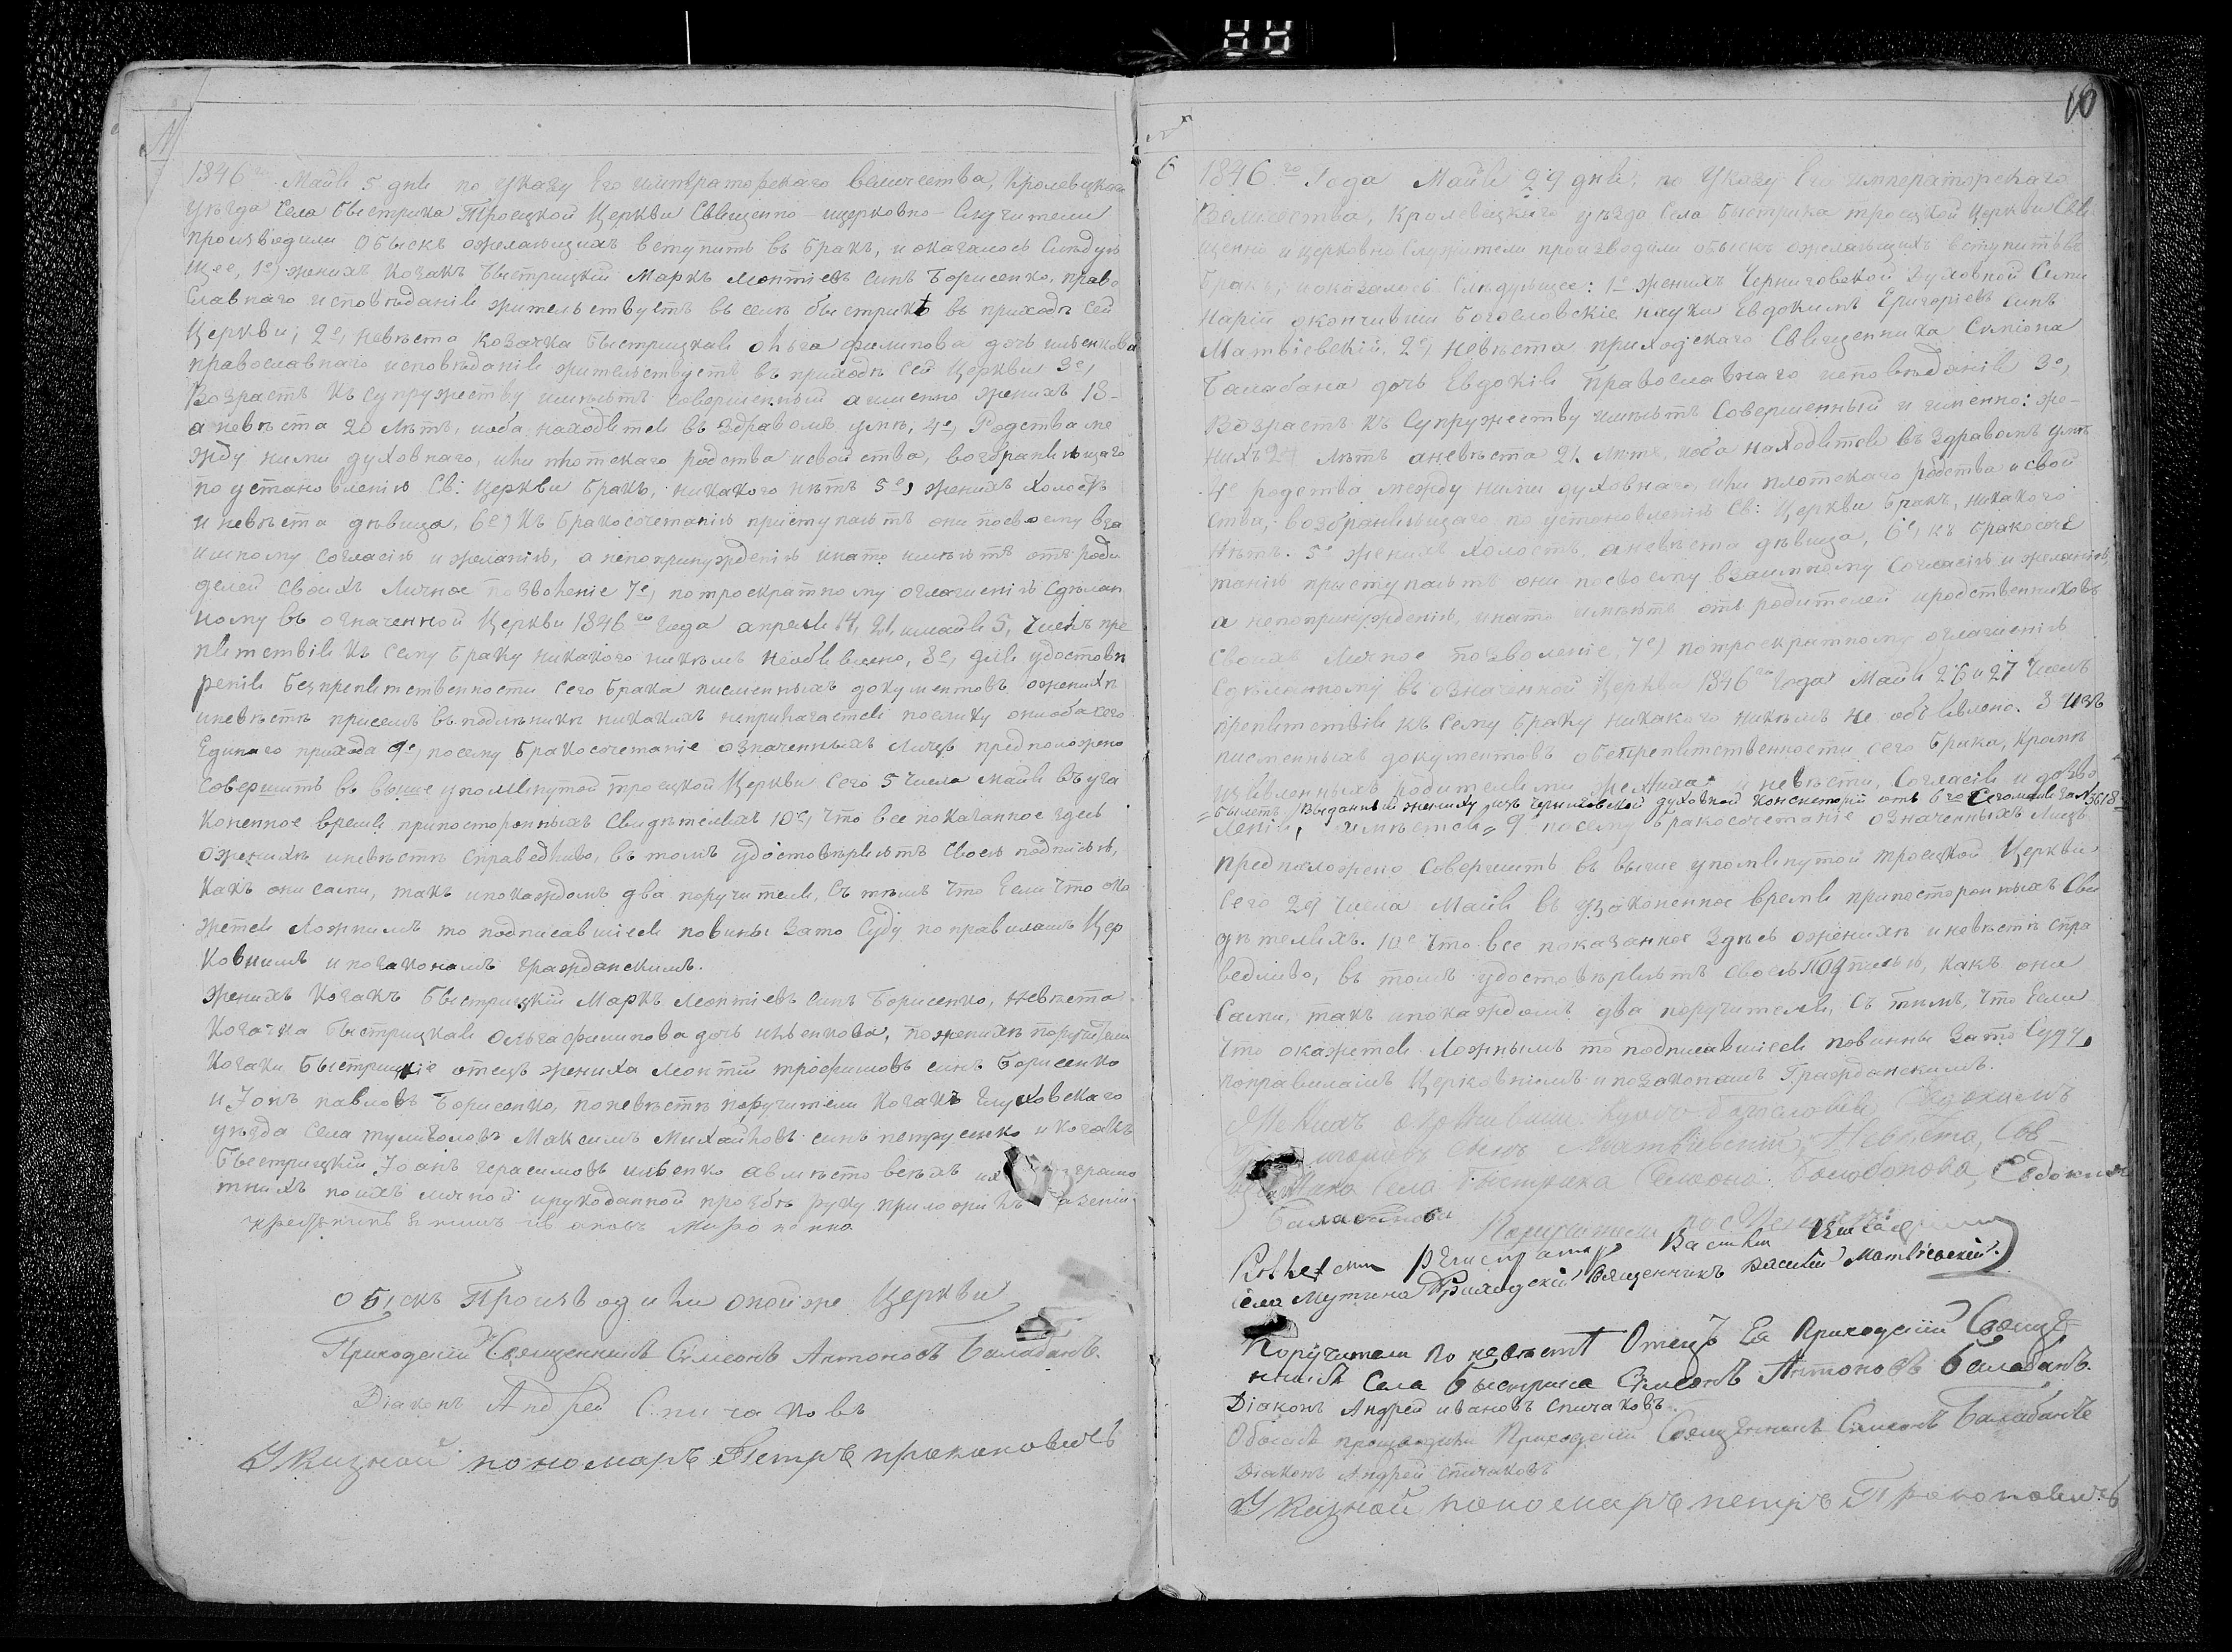 1846го Маія 5 дня по указу Его императорскаго величества, Кролевецкаго
уѣзда Села быстрика Троецкой Церкви Священно-ицерковно-Служители
производили обыскъ ожелающихъ вступить въ бракъ, и оказалось Слѣдую
щее, 1е) женихъ Козакъ быстрицкій Маркъ Леонтіевъ синъ Борисенко, право
славнаго исповѣданія жительствуетъ въ селѣ быстрикѣ въ приходѣ сей
Церкви; 2е, невѣста козачка быстрицкая ольга филипова дочь
православнаго исповѣданія жительствуетъ въ приходѣ сей Церкви 3е,
Возрастъ къ супружеству имѣютъ совершенный аименно женихъ 18-
аневѣста 20 лѣтъ, иоба находятся въ здравомъ умѣ, 4е, Родства ме
жду ними духовнаго, или плотскаго родства исвойства, возбраняющаго
по установленію Св: Церкви бракъ, никакого нѣтъ 5е, женихъ холостъ
и невѣста дѣвица, 6е) Къ бракосочетанію приступаютъ они посвоему вза
имному согласію и желанію, а непопринужденію инато имѣютъ отъ роди
телей своихъ Личное позволеніе 7е, потроекратному оглашенію сдѣлан
ному въ означенной Церкви 1846го года апреля 14, 21, имаія 5, числъ пре
пятствія къ сему браку никакого никѣмъ необъявлено, 8е, для удостовѣ
ренія безпрепятственности сего брака писменныхъ документовъ оженихѣ
иневѣстѣ присемъ въ подлѣнникѣ никакихъ неприлагается поелику ониоба сего
Единаго прихода 9е, посему бракосочетаніе означенныхъ лицъ предположено
совершить въ выше упомянутой троецкой Церкви сего 5 числа маія въ уза
коненное время припостороннихъ свидѣтеляхъ 10е, что все показанное здесь
оженихѣ иневѣстѣ справедливо, въ томъ удостовѣряютъ своею подписью,
какъ они сами, такъ ипокаждомъ два поручителя, съ тѣмъ что если что ока
жется ложнимъ то подписавшіеся повины зато суду поправиламъ Цер
ковнимъ и позаконамъ гражданскимъ.
женихъ козакъ быстрицкій Маркъ Леонтіевъ синъ Борисенко, невѣста
козачка быстрицкая Ольга филипова дочь, поженихѣ поручители
козаки быстрицкіе отецъ жениха Леонтій трофимовъ синъ борисенко
и Іонъ павловъ Борисенко, поневѣстѣ поручители козакъ глуховскаго
уѣзда села тулиголовъ Максимъ Михайловъ синъ петрусенко и козакъ
быстрицкій Іоанъ герасимовъ авмѣсто всѣхъ грамо
тнихъ поихъ личной ирукоданной прозбѣ руку приложилъ
обискъ Производили оной же Церкви
Приходскій Священникъ Симеонъ Антоновъ Балабанъ.
Діаконъ Андрей Спичаковъ
Указной пономарь Петръ прокоповичъ
10
6
1846го Года Маія 29 дня, по Указу Его императорскаго
Величества, Кролевецкаго уѣзда Села быстрика троецкой Церкви Свя
щенно и церковно служители производили обыскъ ожелающихъ вступить въ
бракъ, иоказалось слѣдующее: 1е женихъ Черниговской духовной Семи
наріи окончивший богословскіе науки Евдокимъ Григоріевъ синъ
Матвіевскій, 2е) невѣста приходскаго Священника Симеона
Балабана дочь Евдокія Православнаго исповѣданія 3е,
Возрастъ къ супружеству имѣютъ совершенный и именно: же-
нихъ 24 лѣтъ аневѣста 21 лѣтъ, иоба находятся въ здравомъ умѣ
4е родства между ними духовнаго, или плотскаго родства и свой
ства, возбраняющаго по установленію Св: Церкви бракъ, никакого
нѣтъ. 5е женихъ холостъ, аневѣста дѣвица, 6е, къ бракосоче
танію приступаютъ они посвоему взаимному согласію и желанію,
а непопринужденію, инато имѣютъ отъ родителей иродственниковъ
своихъ Личное позволеніе, 7е) потроекратному оглашенію
Сдѣланному въ означенной Церкви 1846го года Маія 26 и 27 числъ
препятствія къ сему браку никакого никѣмъ не объявлено. 8
писменныхъ документовъ обезпрепятственности сего брака, кромѣ
изъявленныхъ родителями жениха и невѣсти, согласія и дозво
=билетъ, Выданный жениху изъ Черниговской духовной Консисторіи отъ 6го Сегомаія за № 3618=
ленія, имѣется= 9е посему бракосочетаніе означенныхъ лицъ
предположено совершить въ выше упомянутой троецкой Церкви
сего 29 числа Маія въ узаконенное время припостороннихъ Сви
дѣтеляхъ. 10е Что все показанное здѣсь оженихѣ иневѣстѣ спра
ведливо, въ томъ удостовѣряютъ своею подписью, какъ они
Сами, такъ ипокаждомъ два поручителя, Съ тѣмъ, что Если
Что окажется ложнымъ то подписавшіеся повинны зато Суду,
поправиламъ Церковнымъ ипозаконамъ Гражданскимъ.
Женихъ окончивши Евдокимъ
синъ Матвіевскій, Невѣста, Свя-
Села Быстрика Симеона Балабанова Евдокия
Балабанова Поручители по Женихѣ
Регистраторъ Василій
села Мутина Приходскій Священникъ Василій Матвіевскій.
Поручители по невѣстѣ Отецъ Ея Приходскій Свяще
нникъ Села быстрика Симеонъ Антоновъ Балабанъ.
Діаконъ Андрей ивановъ Спичаковъ.
Обыскъ производили Приходскій Священникъ Симеонъ Балабанъ
Діаконъ Андрей Спичаковъ
Указной пономарь петръ Прокоповичъ